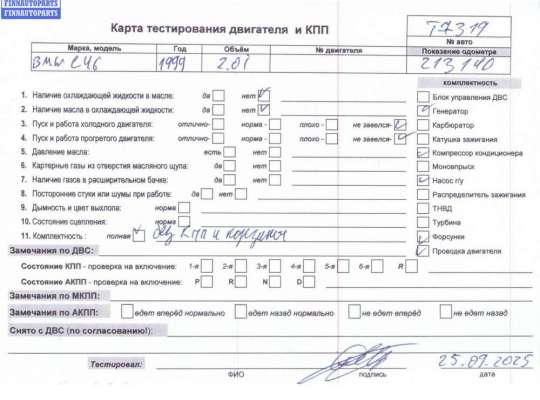 FINNAUTOPARTS
FINNAUTOPARTS
Карта тестирования двигателя и КПП
№ авто
Марка, модель Год Объём № двигателя Показание одометра
BMW E46 1999 2.0i 213140
комплектность
1. Наличие охлаждающей жидкости в масле: да нет
Блок управления ДВС
2. Наличие масла в охлаждающей жидкости: да нет
Генератор
3. Пуск и работа холодного двигателя: отлично- норма - плохо - не завелся-
Карбюратор
4. Пуск и работа прогретого двигателя: отлично- норма - плохо - не завелся-
Катушка зажигания
5. Давление масла: есть нет
Компрессор кондиционера
6. Картерные газы из отверстия масляного щупа: да нет
Моновпрыск
7. Наличие газов в расширительном бачке: да нет
Насос г/у
8. Посторонние стуки или шумы при работе: да нет
Распределитель зажигания
9. Дымность и цвет выхлопа: норма
ТНВД
10. Состояние сцепления: норма
Турбина
11. Комплектность : полная без КПП и корзины
Форсунки
Замечания по ДВС:
Проводка двигателя
Состояние КПП - проверка на включение: 1-я 2-я 3-я 4-я 5-я 6-я R
Состояние АКПП - проверка на включение: P R N D
Замечания по МКПП:
Замечания по АКПП: едет вперёд нормально едет назад нормально не едет вперёд не едет назад
Снято с ДВС (по согласованию!):
Тестировал: 25.09.2025
ФИО подпись дата